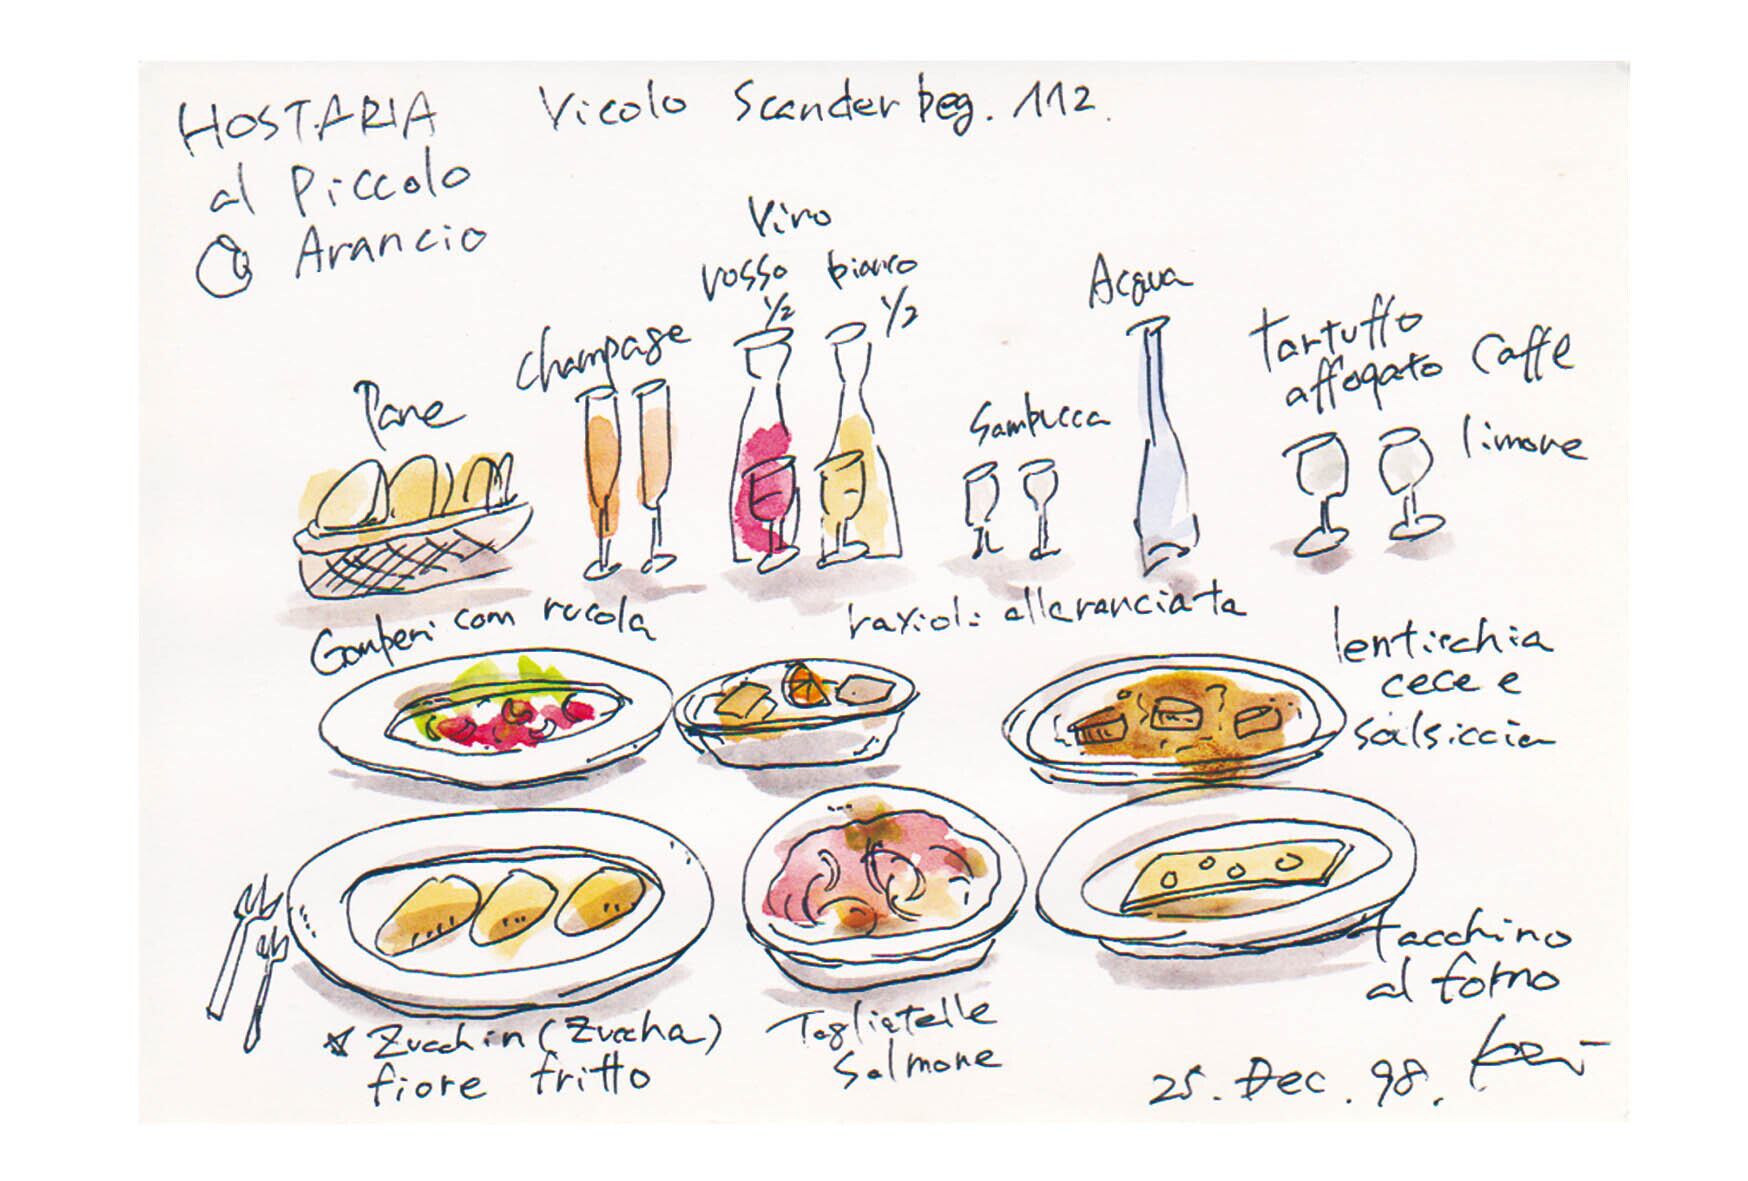 HOSTARIA
al Piccolo
Arancio
Vicolo Scanderbeg. 112.
Vino
rosso bianco
1/2 1/2
Acqua
champage
Pane
Sambucca
tartuffo
affogato caffe
limone
Gamberi com rucola
ravioli allaranciata
lenticchia
cece e
salsiccia
Zucchin (Zuccha)
fiore fritto
Tagliatelle
Salmone
tacchino
al forno
25. Dec. 98.